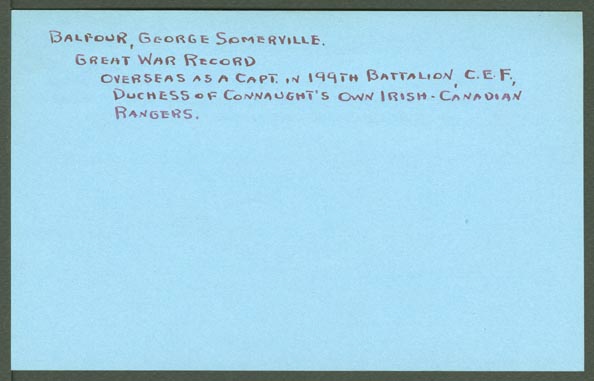 BALFOUR, GEORGE SOMERVILLE.
GREAT WAR RECORD
OVERSEAS AS A CAPT. IN 199TH BATTALION, C.E.F.,
DUCHESS OF CONNAUGHT'S OWN IRISH-CANADIAN
RANGERS.